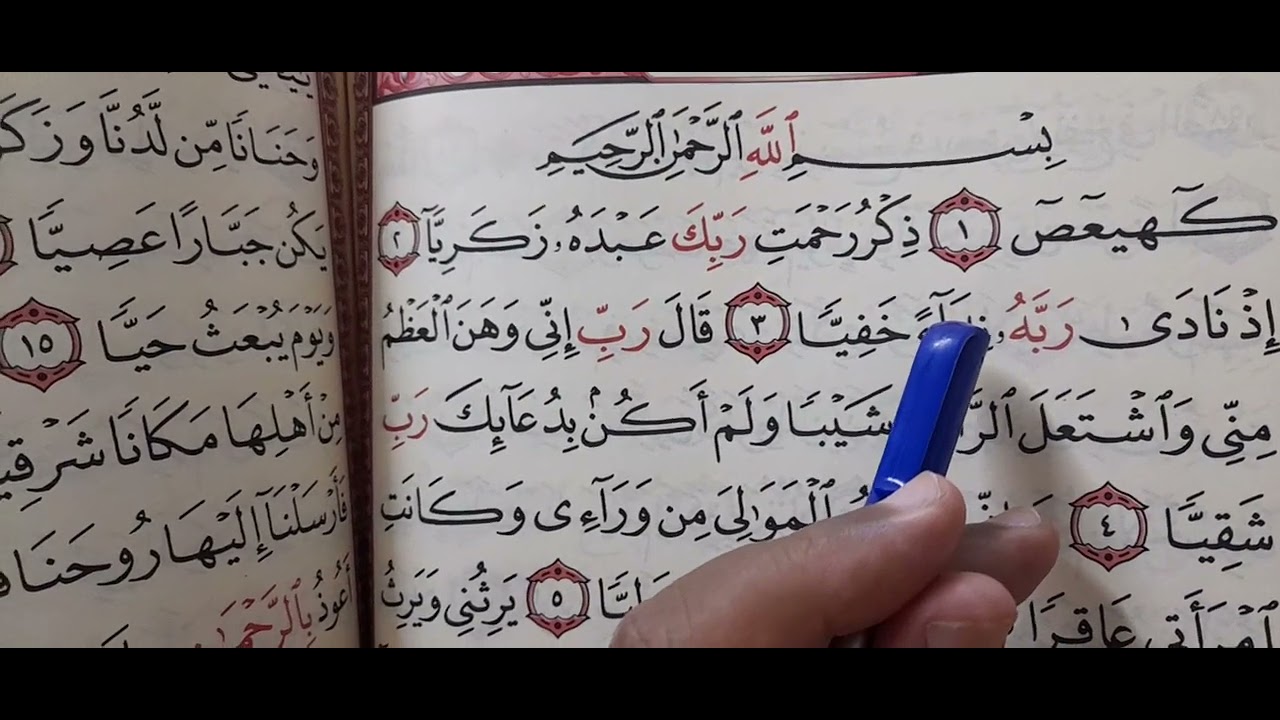 بِسْمِ ٱللَّهِ ٱلرَّحْمَٰنِ ٱلرَّحِيمِ
كٓهيعٓصٓ ١ ذِكْرُ رَحْمَتِ رَبِّكَ عَبْدَهُۥ زَكَرِيَّآ ٢
إِذْ نَادَىٰ رَبَّهُۥ نِدَآءً خَفِيًّا ٣ قَالَ رَبِّ إِنِّى وَهَنَ ٱلْعَظْمُ
مِنِّى وَٱشْتَعَلَ شَيْبًا وَلَمْ أَكُنۢ بِدُعَآئِكَ رَبِّ
شَقِيًّا ٤ ٱلْمَوَٰلِىَ مِن وَرَآءِى وَكَانَتِ
ٱمْرَأَتِى عَاقِرًا ٥ يَرِثُنِى وَيَرِثُ
وَحَنَانًا مِّن لَّدُنَّا وَزَكَ
يَكُن جَبَّارًا عَصِيًّا
وَيَوْمَ يُبْعَثُ حَيًّا ١٥
مِنْ أَهْلِهَا مَكَانًا شَرْقِيًّ
فَأَرْسَلْنَآ إِلَيْهَا رُوحَنَا فَ
أَعُوذُ بِٱلرَّحْمَٰ